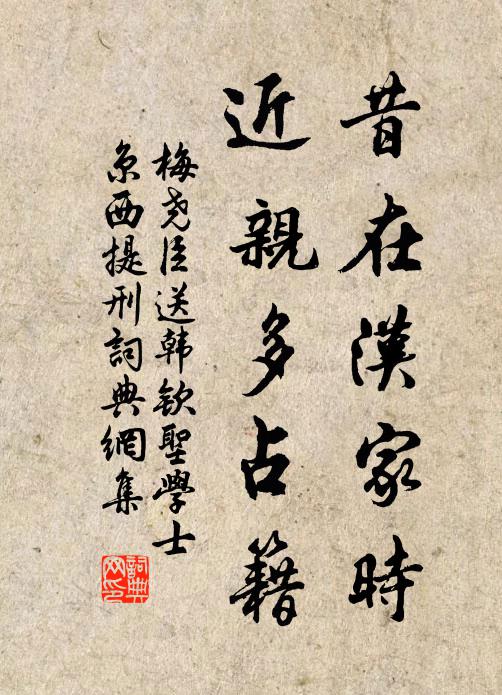 昔在漢家時
近親多占籍
梅尧臣送韩钦聖學士
京西提刑詞典網集
詞典
网印